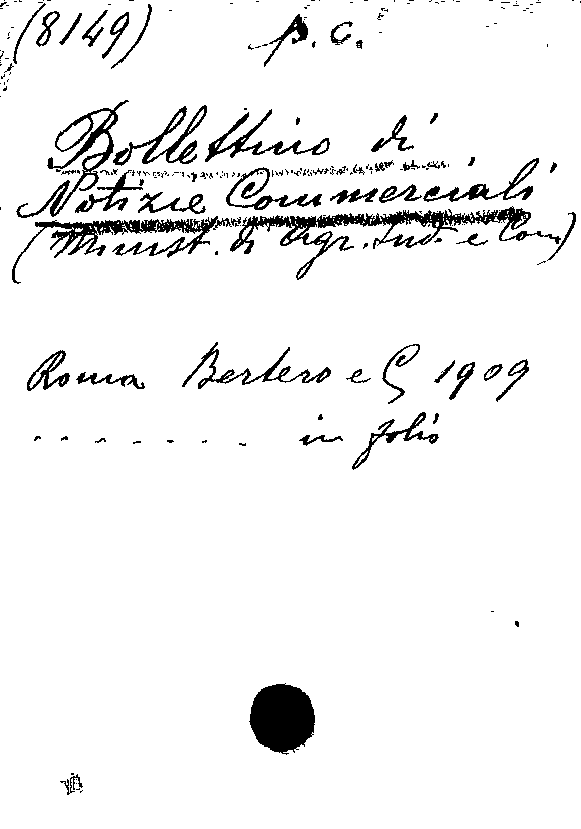 (8149) p. c.
Bollettino di
Notizie Commerciali
(Minist. di Agr. Ind. e Com)
Roma Bertero e C 1909
- - - - - - - - in folio